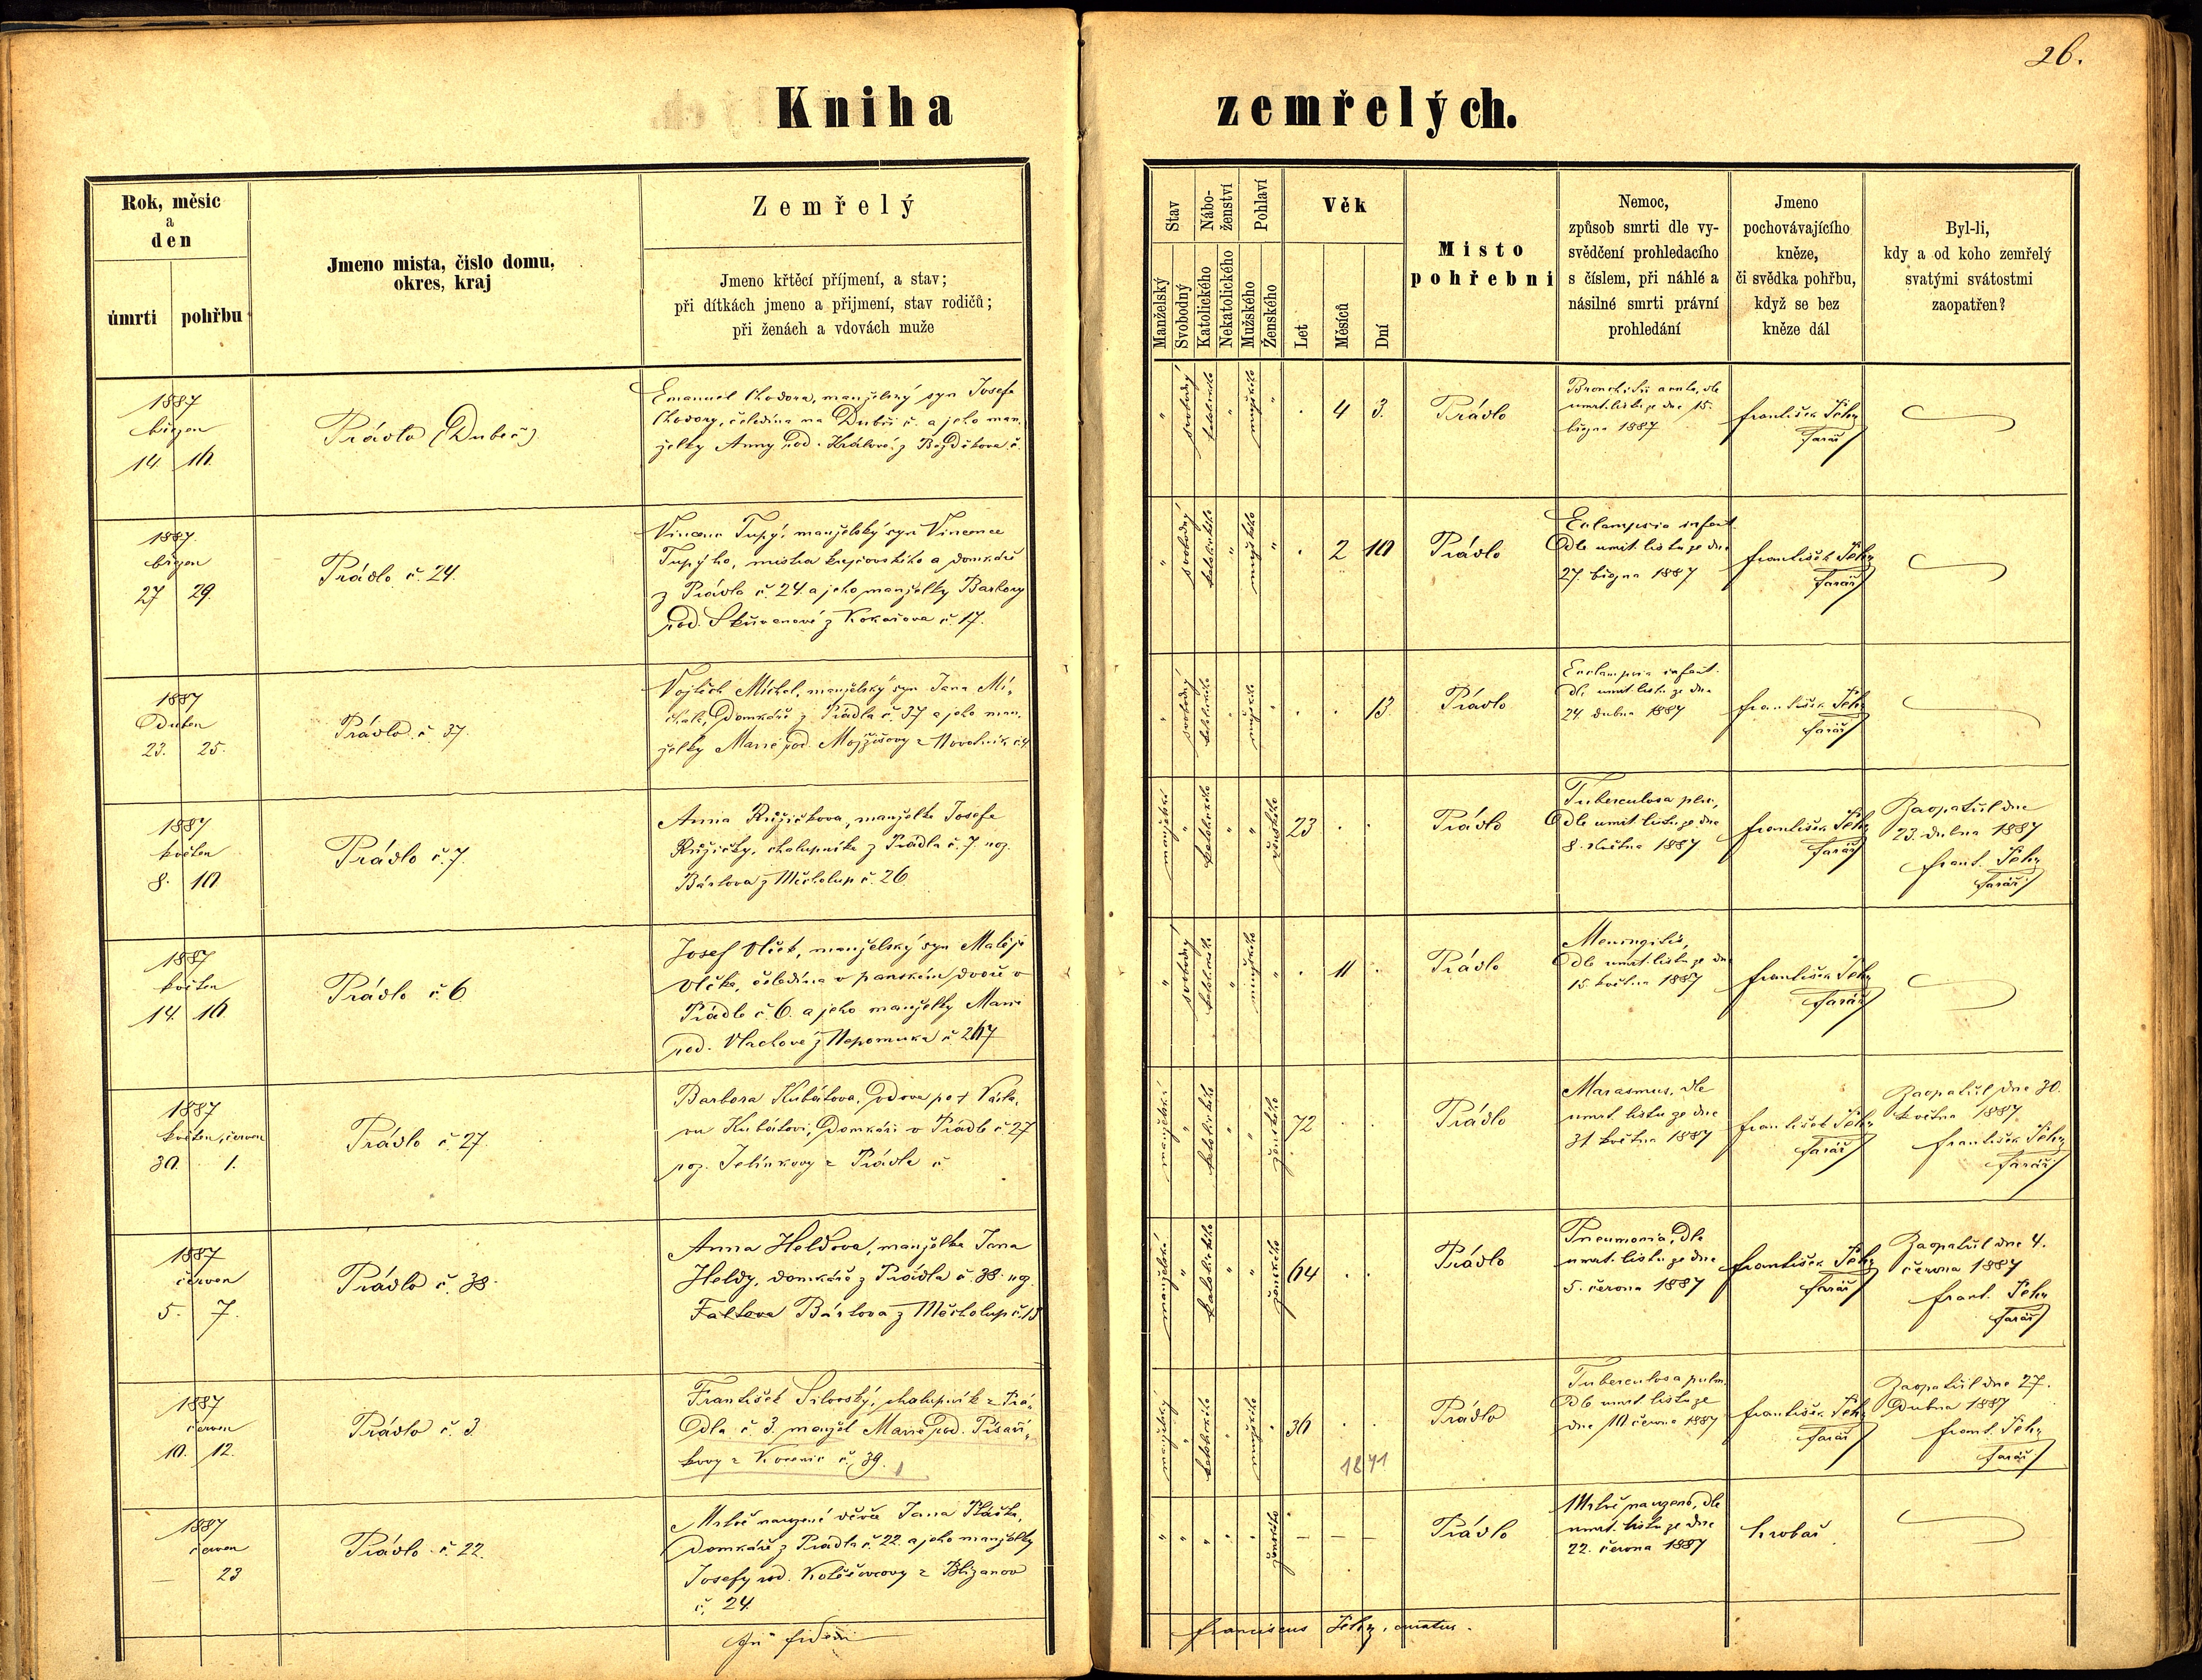 26.
Kniha zemřelých.
Rok, měsíc
a
den
úmrtí
pohřbu
Jmeno mista, číslo domu,
okres, kraj
Zemřelý
Jmeno křtěcí příjmení, a stav;
při dítkách jmeno a příjmení, stav rodičů;
při ženách a vdovách muže
Stav
Manželský
Svobodný
Nábo-
ženství
Katolického
Nekatolického
Pohlaví
Mužského
Ženského
Věk
Let
Měsíců
Dní
Misto
pohřebni
Nemoc,
způsob smrti dle vy-
svědčení prohledacího
s číslem, při náhlé a
násilné smrti právní
prohledání
Jmeno
pochovávajícího
kněze,
či svědka pohřbu,
když se bez
kněze dál
Byl-li,
kdy a od koho zemřelý
svatými svátostmi
zaopatřen?
1887
březen
14 16.
Prádlo (Dubeč)
Emanuel Chodora, manželský syn Josefa
Chodory, čeledína na Dubči č. a jeho man-
želky Anny rod. Králové z
" svobodný katolického " mužského " . 4 3.
Prádlo
dle
umrt. listu ze dne 15.
března 1887
františek
farář
1887.
březen
27 29
Prádlo č. 24.
Vincenc Tupý, manželský syn Vincence
Tupýho, mistra krejčovského a domkáře
z Prádla č. 24. a jeho manželky Barbory
rod. z Kokořova č. 17.
" svobodný katolického " mužského " . 2 10
Prádlo
Eclampsia infant.
dle umrt. listu ze dne
27. března 1887
františek
farář
1887
Duben
23. 25.
Prádlo č. 37.
Vojtěch Míchal, manželský syn Jana Mí-
chala, Domkáře z Prádla č. 37 a jeho man-
želky Marie rod.
" svobodný katolického " mužského " . . 13.
Prádlo
Eclampsia infant.
dle umrt. listu ze dne
24. dubna 1887
františek
farář
1887
květen
8. 10
Prádlo č. 7.
Anna Růžičkova, manželka Josefa
Růžičky, chalupníka z Prádla č. 7 roz.
Bártova z Měcholup č. 26.
manželská " katolického " " ženského 23 . .
Prádlo
Tuberculosa
dle umrt. listu ze dne
8. května 1887
františek
farář
Zaopatřil dne
23. dubna 1887
frant.
farář
1887
květen
14. 16
Prádlo č. 6
Josef Vlček, manželský syn Matěje
Vlčka, čeledína v panském dvoře v
Prádle č. 6. a jeho manželky Marie
rod. Vlachové z Nepomuka č. 267
" svobodný katolického " mužského " . 11 .
Prádlo
Meningitis,
dle umrt. listu ze dne
15 května 1887
františek
farář
1887
květen, červen
30. 1.
Prádlo č. 27.
Barbora Kubátova, vdova po † Václa-
vu Kubátovi, Domkáři v Prádle č. 27
roz. Jelínkovy z Prádla č
manželská " katolického " " ženského 72 . .
Prádlo
Marasmus, dle
umrt. listu ze dne
31 května 1887
františek
farář
Zaopatřil dne 30.
května 1887
františek
farář
1887
červen
5. 7.
Prádlo č. 38.
Anna Heldova, manželka Jana
Heldy, domkáře z Prádla č. 38. roz.
Bártova z Měcholup č. 13
manželská " katolického " " ženského 64 . .
Prádlo
Pneumonia, dle
umrt. listu ze dne
5. června 1887
františek
farář
Zaopatřil dne 4.
června 1887
frant.
farář
1887
červen
10. 12.
Prádlo č. 3.
František Silovský, chalupník z Prá-
dla č. 3. manžel Marie rod. Písaří-
kovy z Kocenic č. 39.
manželský " katolického " mužského " 36 . .
1871
Prádlo
Tuberculosa pulm.
dle umrt. listu ze
dne 10 června 1887
františek
farář
Zaopatřil dne 27.
dubna 1887
frant.
farář
1887
červen
— 23
Prádlo č. 22.
Mrtvě narozené děvče Jana
Domkáře z Prádla č. 22. a jeho manželky
Josefy rod. z Blizanov
č. 24.
" " " " " ženského — — —
Prádlo
Mrtvě narozeno, dle
umrt. listu ze dne
22. června 1887
hrobař
In fidem
franciscus curatus.